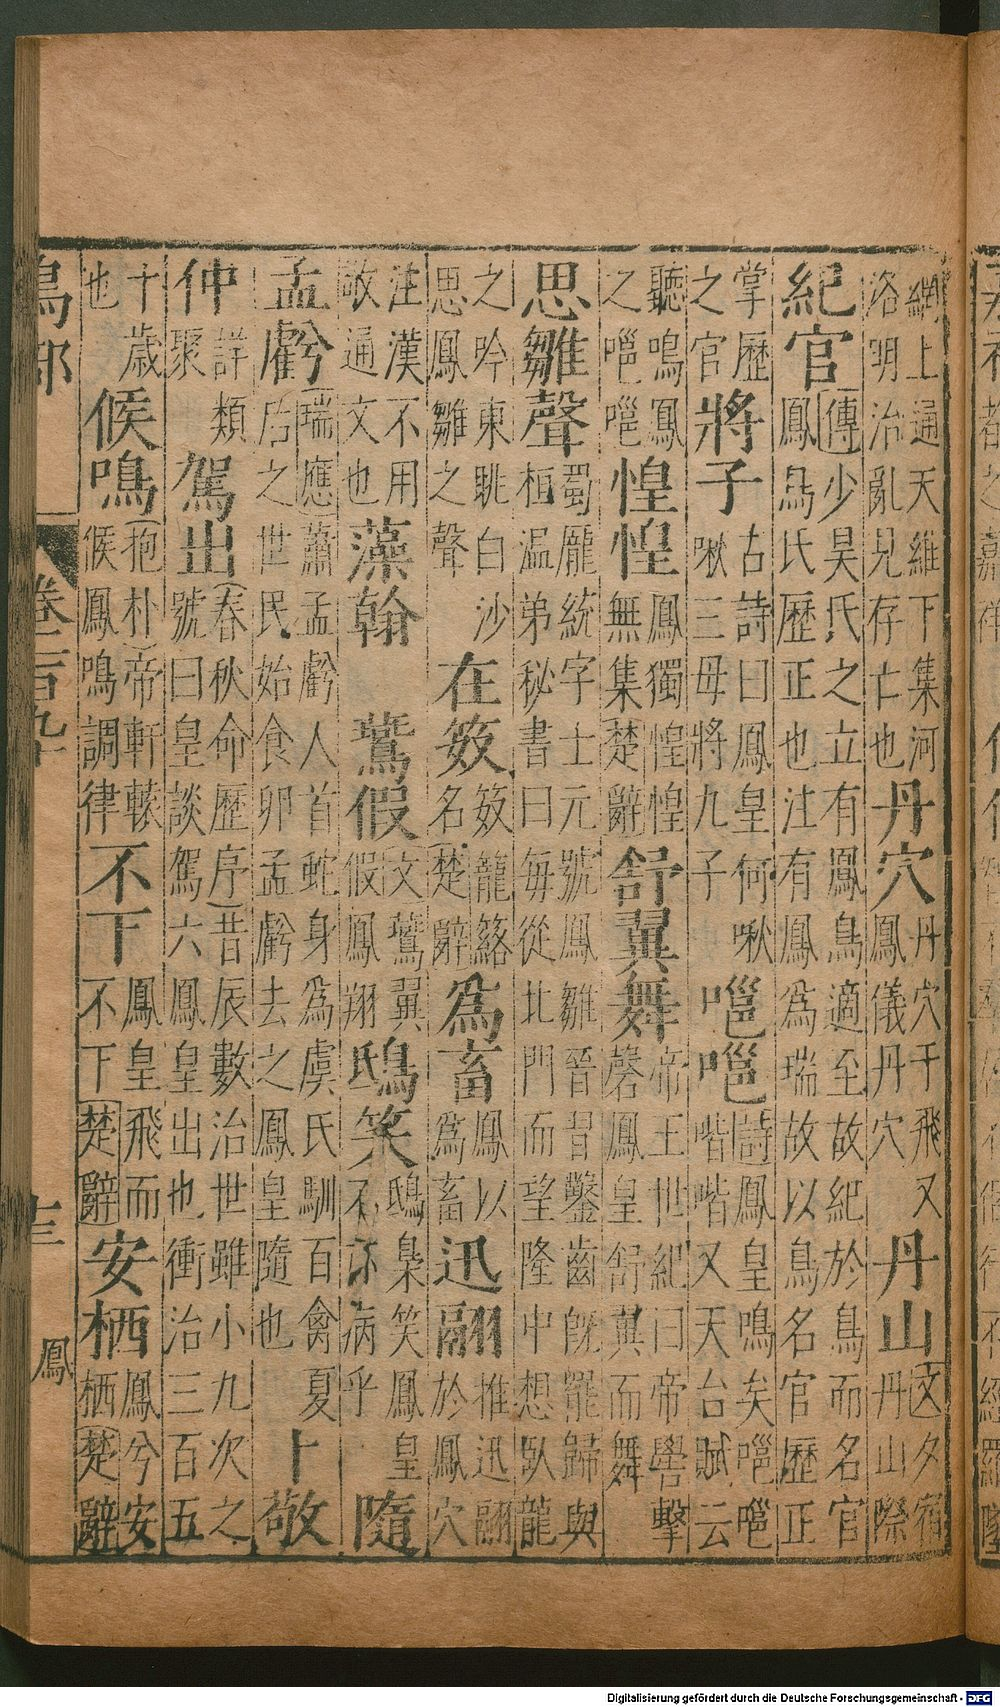 網上通天維下集河洛明治亂見存亡也丹穴丹穴于飛又鳳儀丹穴丹山文夕宿丹山際
紀官傳少昊氏之立有鳳鳥適至故紀於鳥而名官鳳鳥氏歷正也注有鳳為瑞故以鳥名官歷正
掌歷之官將子古詩曰鳳皇何啾啾三母將九子嗈嗈詩鳳皇鳴矣嗈嗈喈喈又天台賦云
聽鳴鳳之嗈嗈惶惶鳳獨惶惶無集楚辭舒翼舞帝王世紀曰帝嚳擊磬鳳皇舒翼而舞
思雛聲蜀龐統字士元號鳳雛晉習鑿齒旣罷歸與桓温弟秘書曰每從北門而望隆中想臥龍
之吟東眺白沙思鳳雛之聲在笯笯籠絡名楚辭為畜鳳以為畜迅翮推迅翮於鳳穴
注漢不用敬通文也藻翰鷟假文鷟翼假鳳翔鴟笑鴟梟笑鳳皇不亦病乎隨
孟虧瑞應蕭孟虧人首蛇身為虞氏馴百禽夏后之世民始食卵孟虧去之鳳皇隨也卜敬
仲詳類聚駕出春秋命歷序昔辰數治世雖小九次之號曰皇談駕六鳳皇出也衝治三百五
十歲也候鳴抱朴帝軒轅候鳳鳴調律不下鳳皇飛而不下楚辭安栖鳳兮安栖楚辭
鳥部 卷二百九十 十三 鳳
Digitalisierung gefördert durch die Deutsche Forschungsgemeinschaft - DFG